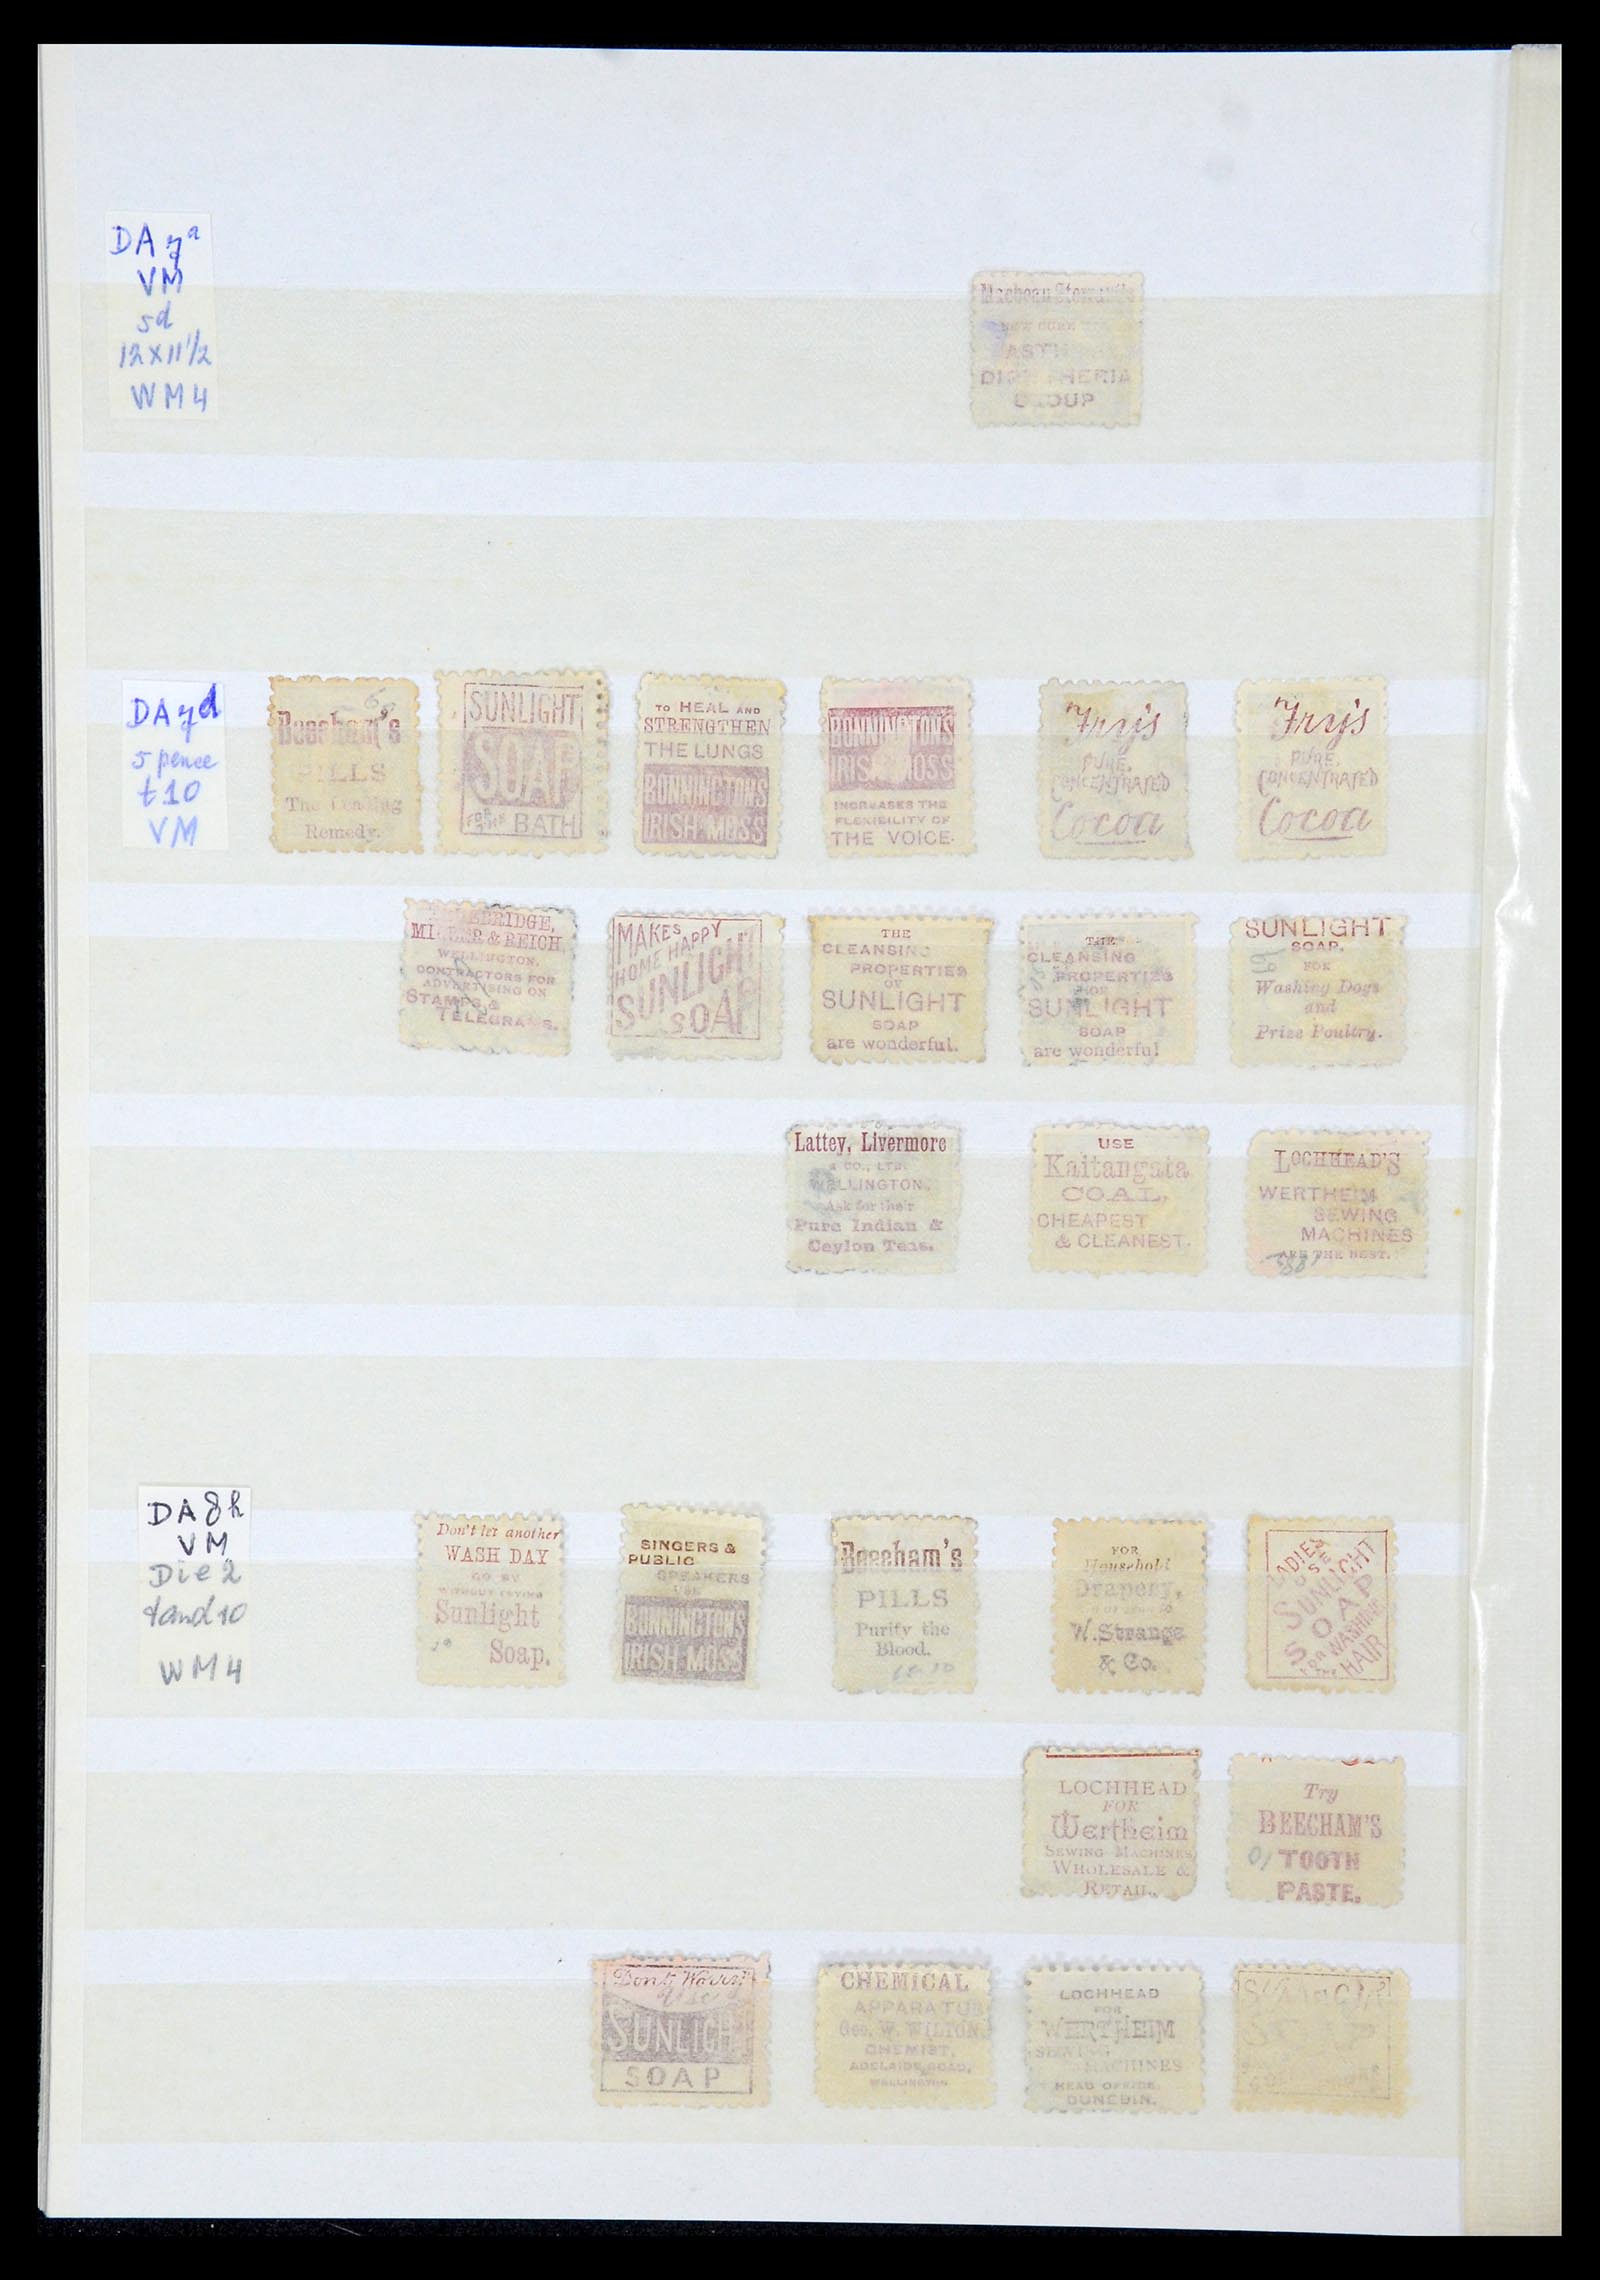 DA 7a
VM
5d
12 X 11 1/2
WM 4
DIPHTHERIA
CROUP
DA 7d
5 pence
t 10
VM
Beecham's
PILLS
The Leading
Remedy.
SUNLIGHT
SOAP
FOR THE BATH
TO HEAL AND
STRENGTHEN
THE LUNGS
BONNINGTONS
IRISH MOSS
BONNINGTONS
IRISH MOSS
INCREASES THE
FLEXIBILITY OF
THE VOICE.
Fry's
PURE,
CONCENTRATED
Cocoa
Fry's
PURE,
CONCENTRATED
Cocoa
MILLER & REICH,
WELLINGTON,
CONTRACTORS FOR
ADVERTISING ON
STAMPS &
TELEGRAMS.
MAKES
HOME HAPPY
SUNLIGHT
SOAP
THE
CLEANSING
PROPERTIES
OF
SUNLIGHT
SOAP
are wonderful.
THE
CLEANSING
PROPERTIES
SUNLIGHT
SOAP
are wonderful
SUNLIGHT
SOAP.
FOR
Washing Dogs
and
Prize Poultry.
Lattey, Livermore
& CO., LTD.
WELLINGTON,
Ask for their
Pure Indian &
Ceylon Teas.
USE
Kaitangata
COAL,
CHEAPEST
& CLEANEST.
LOCHHEAD'S
WERTHEIM
SEWING
MACHINES
ARE THE BEST.
DA 8h
VM
Die 2
t and 10
WM 4
Don't let another
WASH DAY
GO BY
WITHOUT TRYING
Sunlight
Soap.
SINGERS &
PUBLIC
SPEAKERS
USE
BONNINGTONS
IRISH MOSS
Beecham's
PILLS
Purify the
Blood.
FOR
Household
Drapery,
W. Strange
& Co.
LADIES
USE
SUNLIGHT
SOAP
FOR WASHING
THE HAIR
LOCHHEAD
FOR
Wertheim
SEWING MACHINES
WHOLESALE &
RETAIL.
Try
BEECHAM'S
TOOTH
PASTE.
Dont Worry!
Use
SUNLIGHT
SOAP
CHEMICAL
APPARATUS
Geo. W. WILTON,
CHEMIST,
ADELAIDE ROAD,
WELLINGTON
LOCHHEAD
FOR
WERTHEIM
SEWING
MACHINES
HEAD OFFICE,
DUNEDIN.